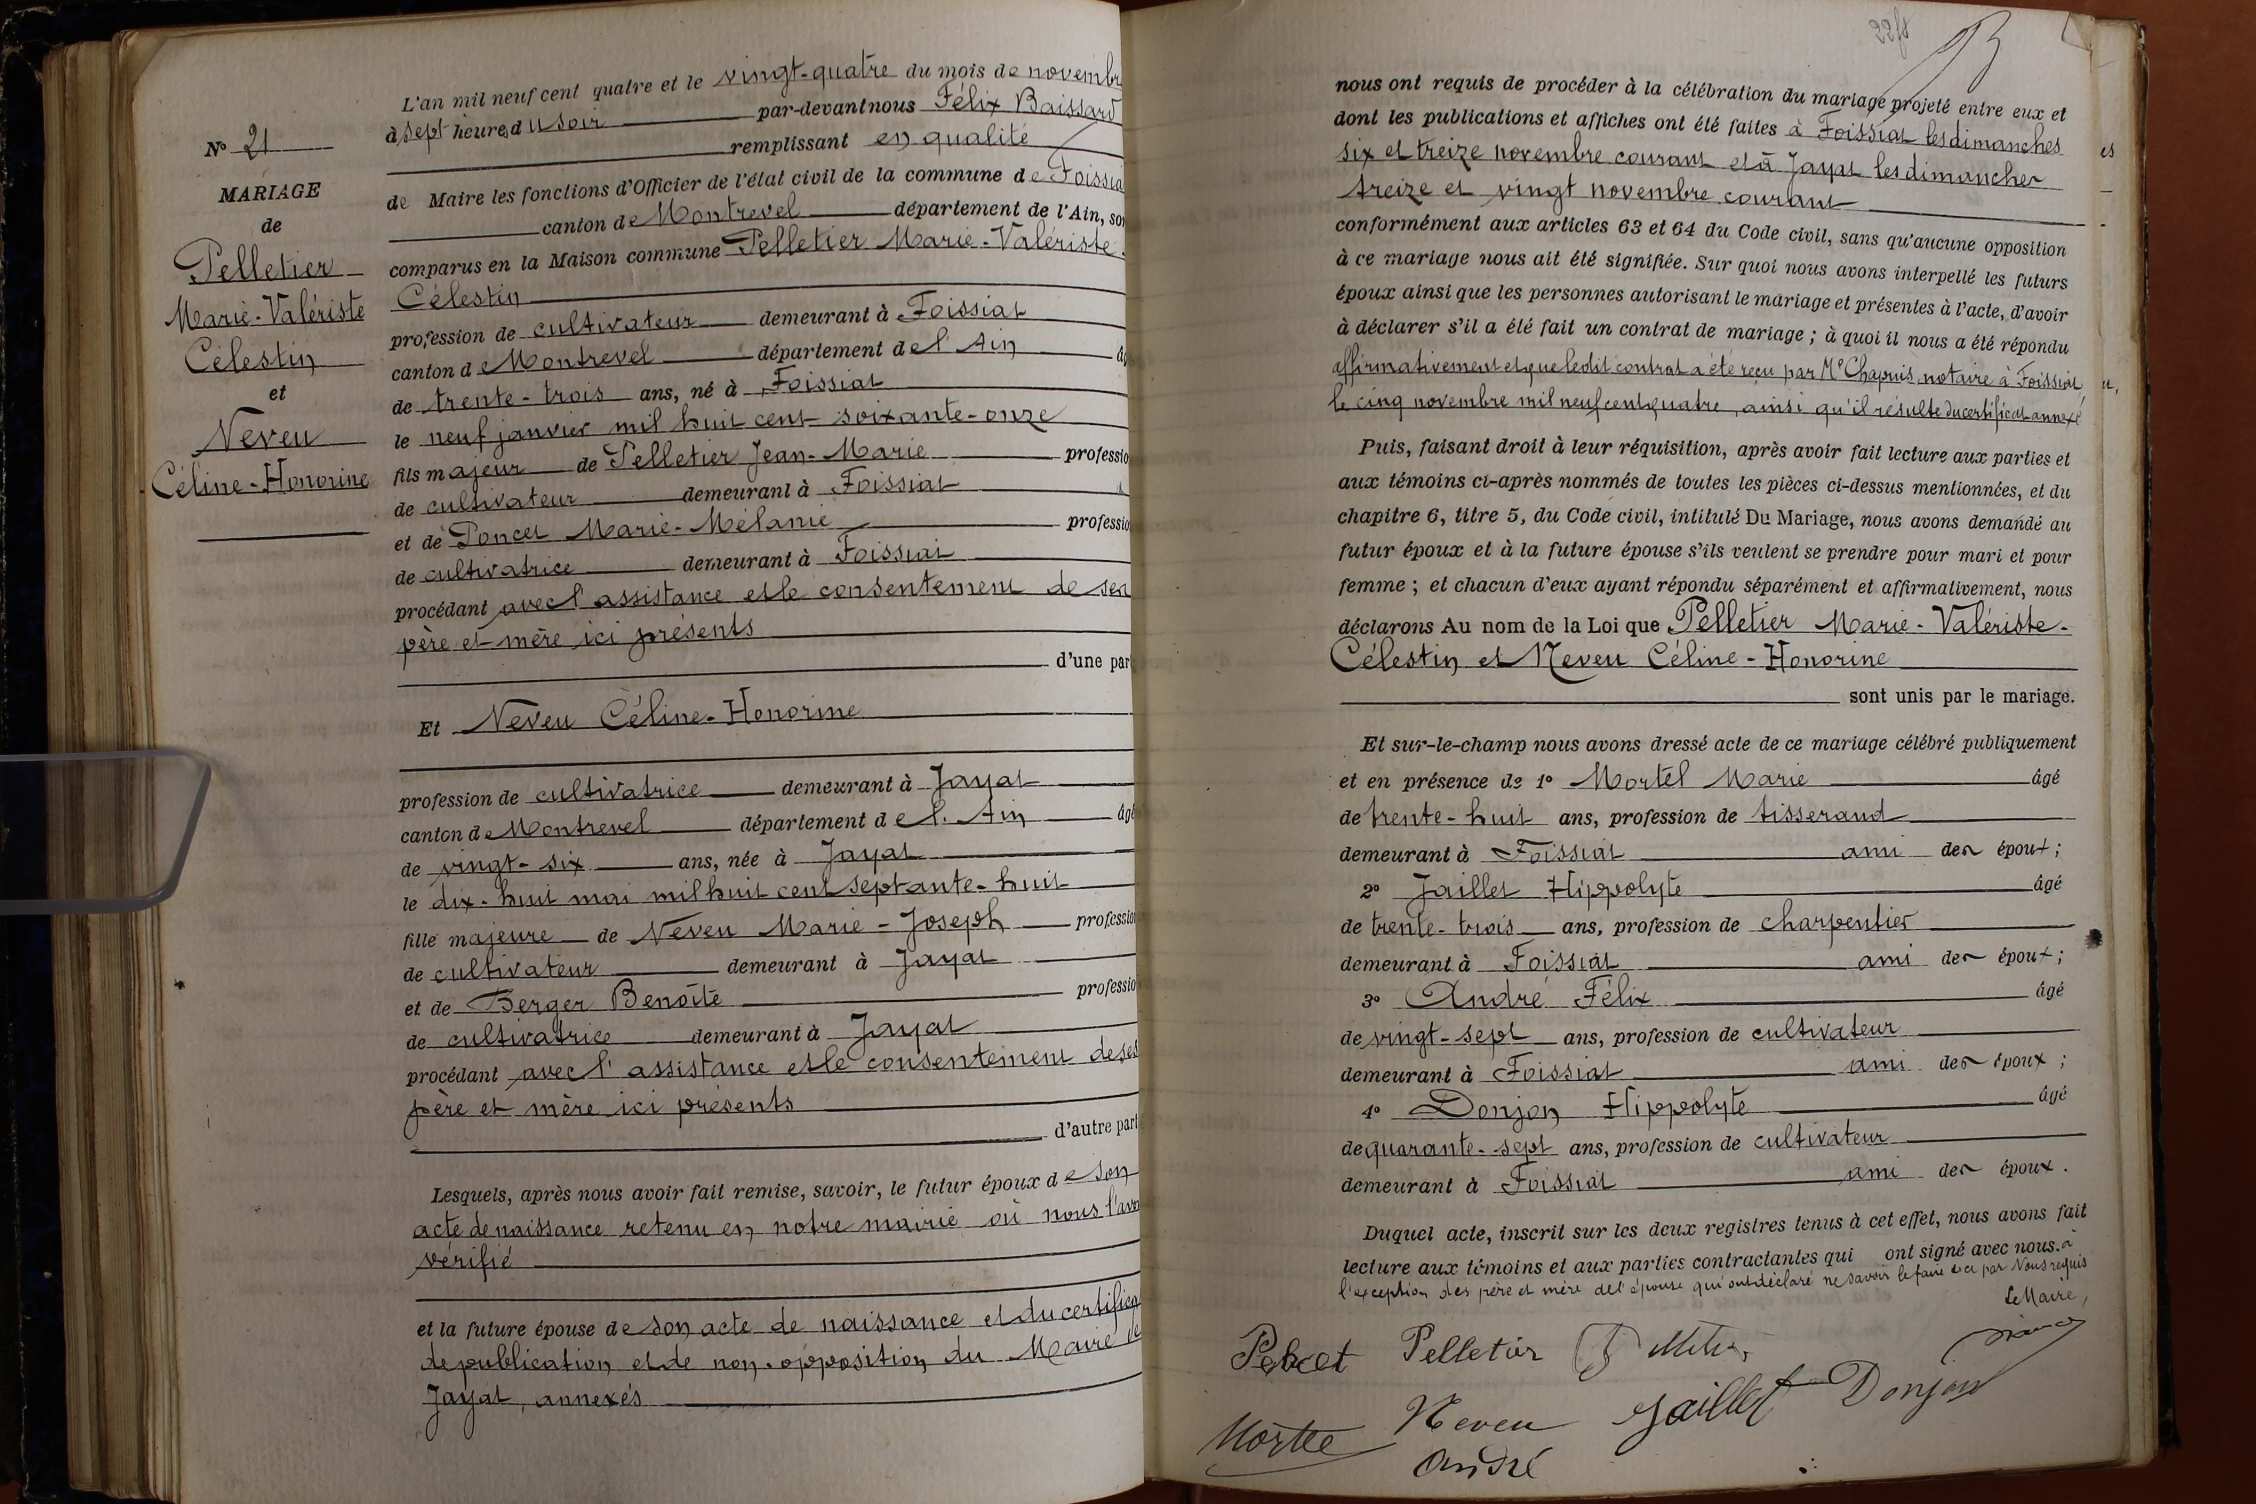 N° 21
MARIAGE
de
Pelletier
Marie-Valériste
Célestin
et
Neveu
Céline-Honorine
L'an mil neuf cent quatre et le vingt-quatre du mois de novembr
à sept heures du soir par-devant nous Félix Baissard
remplissant en qualité
de Maire les fonctions d'Officier de l'état civil de la commune de Foissia
canton de Montrevel département de l'Ain, son
comparus en la Maison commune Pelletier Marie-Valériste-
Célestin
profession de cultivateur demeurant à Foissiat
canton de Montrevel département de l'Ain âg
de trente-trois ans, né à Foissiat
le neuf janvier mil huit cent soixante-onze
fils majeur de Pelletier Jean-Marie professio
de cultivateur demeurant à Foissiat
et de Poncet Marie-Mélanie professio
de cultivatrice demeurant à Foissiat
procédant avec l'assistance et le consentement de ses
père et mère ici présents
d'une par
Et Neveu Céline-Honorine
profession de cultivatrice demeurant à Jayat
canton de Montrevel département de l'Ain âgé
de vingt-six ans, née à Jayat
le dix-huit mai mil huit cent septante-huit
fille majeure de Neveu Marie-Joseph profession
de cultivateur demeurant à Jayat
et de Berger Benoîte professio
de cultivatrice demeurant à Jayat
procédant avec l'assistance et le consentement de ses
père et mère ici présents
d'autre part
Lesquels, après nous avoir fait remise, savoir, le futur époux de son
acte de naissance retenu en notre mairie où nous l'avon
vérifié
et la future épouse de son acte de naissance et du certificat
de publication et de non-opposition du Maire de
Jayat, annexés
nous ont requis de procéder à la célébration du mariage projeté entre eux et
dont les publications et affiches ont été faites à Foissiat les dimanches
six et treize novembre courant et à Jayat les dimanches
treize et vingt novembre courant
conformément aux articles 63 et 64 du Code civil, sans qu'aucune opposition
à ce mariage nous ait été signifiée. Sur quoi nous avons interpellé les futurs
époux ainsi que les personnes autorisant le mariage et présentes à l'acte, d'avoir
à déclarer s'il a été fait un contrat de mariage ; à quoi il nous a été répondu
affirmativement et que ledit contrat a été reçu par Me Chapuis, notaire à Foissiat,
le cinq novembre mil neuf cent quatre, ainsi qu'il résulte du certificat annexé
Puis, faisant droit à leur réquisition, après avoir fait lecture aux parties et
aux témoins ci-après nommés de toutes les pièces ci-dessus mentionnées, et du
chapitre 6, titre 5, du Code civil, intitulé Du Mariage, nous avons demandé au
futur époux et à la future épouse s'ils veulent se prendre pour mari et pour
femme ; et chacun d'eux ayant répondu séparément et affirmativement, nous
déclarons Au nom de la Loi que Pelletier Marie-Valériste-
Célestin et Neveu Céline-Honorine
sont unis par le mariage.
Et sur-le-champ nous avons dressé acte de ce mariage célébré publiquement
et en présence de 1° Mortel Marie âgé
de trente-huit ans, profession de tisserand
demeurant à Foissiat ami des époux ;
2° Jaillet Hippolyte âgé
de trente-trois ans, profession de charpentier
demeurant à Foissiat ami des époux ;
3° André Félix âgé
de vingt-sept ans, profession de cultivateur
demeurant à Foissiat ami des époux ;
4° Donjon Hippolyte âgé
de quarante-sept ans, profession de cultivateur
demeurant à Foissiat ami des époux.
Duquel acte, inscrit sur les deux registres tenus à cet effet, nous avons fait
lecture aux témoins et aux parties contractantes qui ont signé avec nous. à
l'exception des père et mère de l'épouse qui ont déclaré ne savoir le faire de ce par Nous requis
Le Maire,
Pelletier
Neveu Jaillet Donjon
André